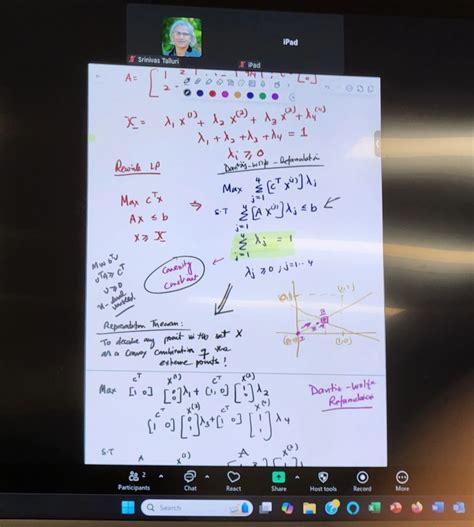 Srinivas Talluri
iPad
iPad
A=
X = λ₁ x⁽¹⁾ + λ₂ x⁽²⁾ + λ₃ x⁽³⁾ + λ₄ x⁽⁴⁾
λ₁ + λ₂ + λ₃ + λ₄ = 1
λj ≥ 0
Rewrite LP
Dantzig-Wolfe - Reformulation
Max cᵀx
Ax ≤ b
x ≥ X
⇒
Max Σ [cᵀ x⁽ʲ⁾] λj
j=1
4
S.T Σ [A x⁽ʲ⁾] λj ≤ b
j=1
Σ λj = 1
j=1
λj ≥ 0, j=1...4
Convexity
constraint
Min bᵀu
uᵀA ≥ cᵀ
u ≥ 0
Representation Theorem:
To describe any point in the set X
as a convex combination of
extreme points!
Max [1 0] [0 0] λ₁ + [1, 0] λ₂
[1 0] λ₃ + [1 0] [1 1] λ₄
Dantzig-Wolfe
Reformulation
S.T
A
x⁽¹⁾
A
x⁽²⁾
2
Participants
Chat
React
Share
Host tools
Record
More
Search